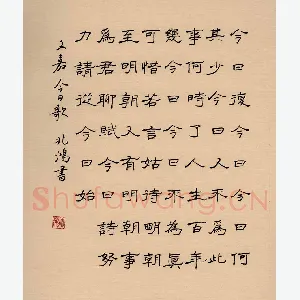 今日復今日今日何
其少今日又不為此
事何時了人生百年
幾今日今日不為真
可惜若言姑待明朝
至明朝又有明朝事
為君聊賦今日詩努
力請從今日始
文嘉今日歌 鴻書
Shufawang.CN